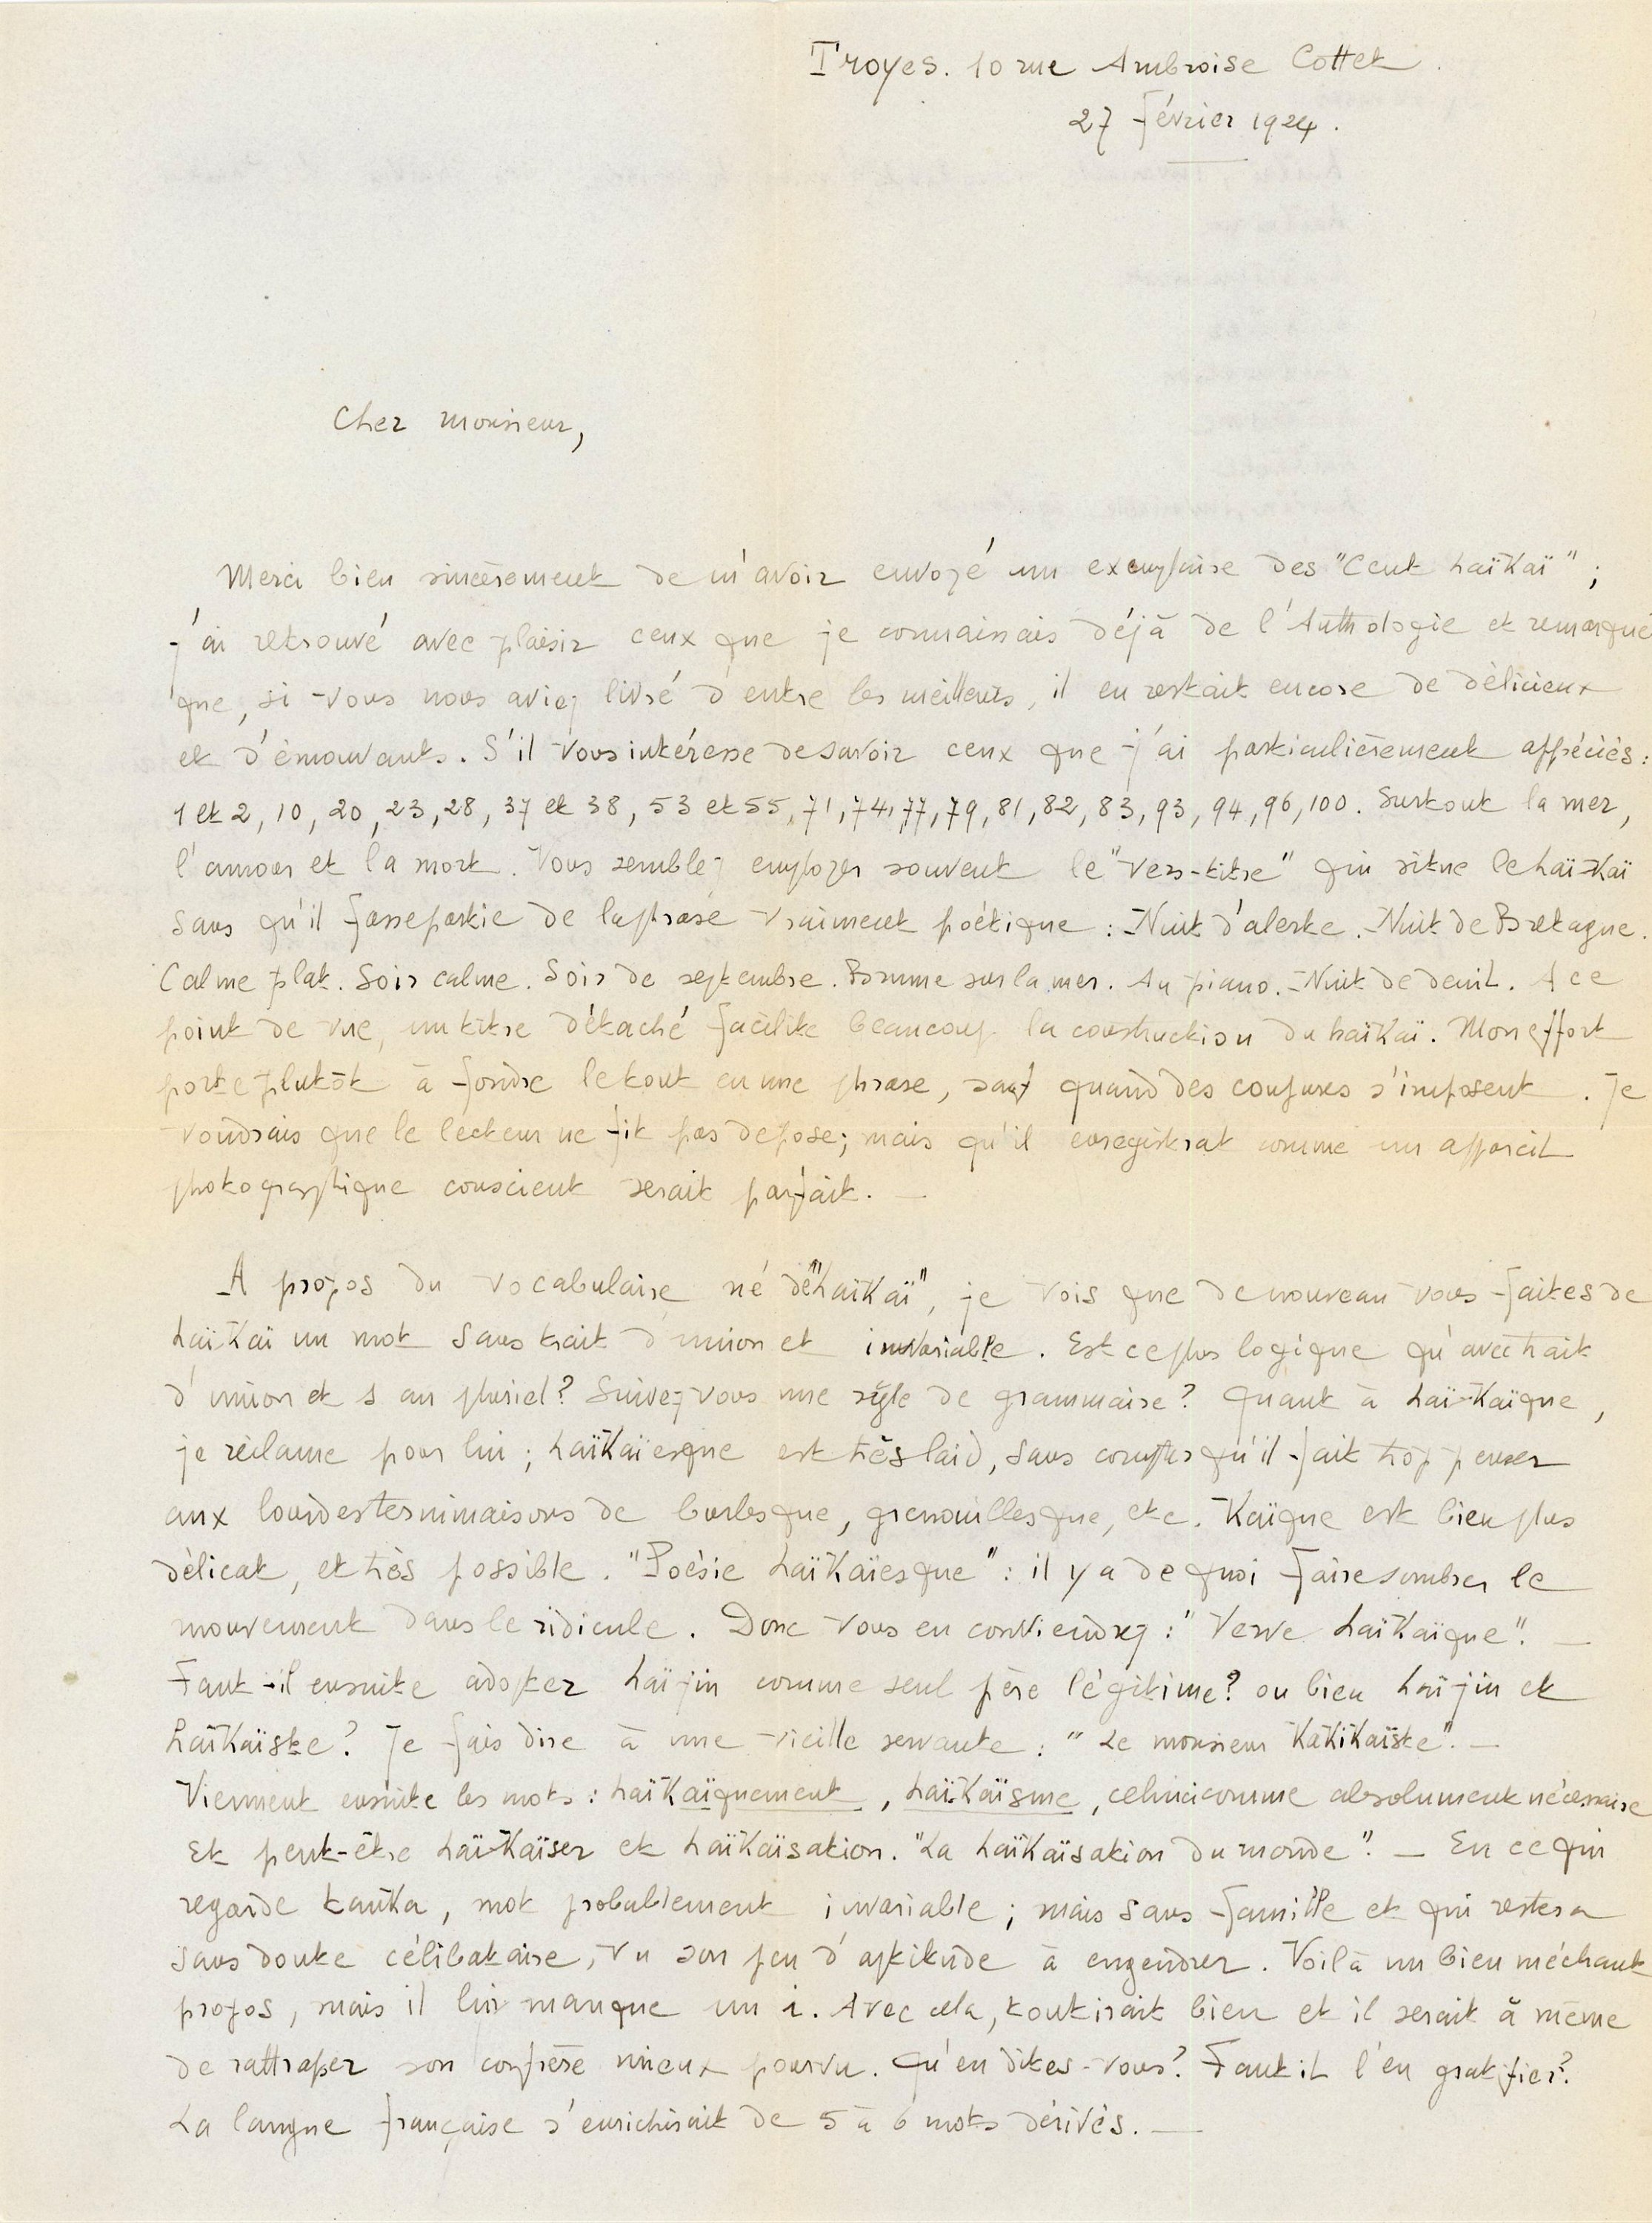 Troyes. 10 rue Ambroise Cottet.
27 février 1924.
Cher Monsieur,
Merci bien sincèrement de m'avoir envoyé un exemplaire des "Cent haïkaï" ;
j'ai retrouvé avec plaisir ceux que je connaissais déjà de l'Anthologie et remarqué
que, si vous nous aviez livré d'entre les meilleurs, il en restait encore de délicieux
et d'émouvants. S'il vous intéresse de savoir ceux que j'ai particulièrement appéciés :
1 et 2, 10, 20, 23, 28, 37 et 38, 53 et 55, 71, 74, 77, 79, 81, 82, 83, 93, 94, 96, 100. Surtout la mer,
l'amour et la mort. Vous semblez employer souvent le "vers-titre" qui situe le haï-kaï
sans qu'il fasse partie de la phrase vraiment poétique : Nuit d'alerte. Nuit de Bretagne.
Calme plat. Soir calme. Soir de septembre. Brume sur la mer. Au piano. Nuit de deuil. A ce
point de vue, un titre détaché facilite beaucoup la construction du haïkaï. Mon effort
porte plutôt à fondre le tout en une phrase, sauf quand des coupures s'imposent. Je
voudrais que le lecteur ne fît pas de pose ; mais qu'il enregistrat comme un appareil
photographique conscient serait parfait. —
A propos du vocabulaire né de "haïkaï", je vois que de nouveau vous faites de
haïkaï un mot sans trait d'union et invariable. Est ce plus logique qu'avec trait
d'union et s au pluriel ? Suivez-vous une règle de grammaire ? Quant à haï-kaïque,
je réclame pour lui ; haïkaïesque est très laid, sans compter qu'il fait trop penser
aux lourdes terminaisons de burlesque, grenouillesque, etc. Kaïque est bien plus
délicat, et très possible. "Poésie haïkaïesque" : il y a de quoi faire sombrer le
mouvement dans le ridicule. Donc vous en conviendrez : "Verve haïkaïque". —
Faut-il ensuite adopter haïjin comme seul père légitime ? ou bien haïjin et
haïkaïste ? Je fais dire à une vieille servante : "Le monsieur Kakikaïste". —
Viennent ensuite les mots : haïkaïquement, haï-kaïsme, celui ci comme absolument nécessaire
Et peut-être haï-kaïser et haïkaïsation. "La haïkaïsation du monde". — En ce qui
regarde tanka, mot probablement invariable ; mais sans famille et qui restera
sans doute célibataire, vu son peu d'aptitude à engendrer. Voilà un bien méchant
propos, mais il lui manque un i. Avec cela, tout irait bien et il serait à même
de rattraper son confrère mieux pourvu. Qu'en dites-vous ? Faut il l'en gratifier ?
La langue française s'enrichirait de 5 à 6 mots dérivés. —